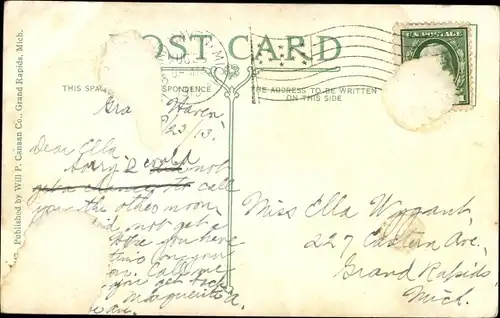 POST CARD
THIS SPA
RESPONDENCE
THE ADDRESS TO BE WRITTEN
ON THIS SIDE
U.S. POSTAGE
Published by Will P. Canaan Co., Grand Rapids, Mich.
Gra Haven
8/23/13.
Dear Ella
Sorry I could not
get a chance to call
you the other noon
did not get a
you here
this on your
Call me
you get back
Marguerite A.
Miss Ella Wygant,
227 Eastern Ave.,
Grand Rapids,
Mich.